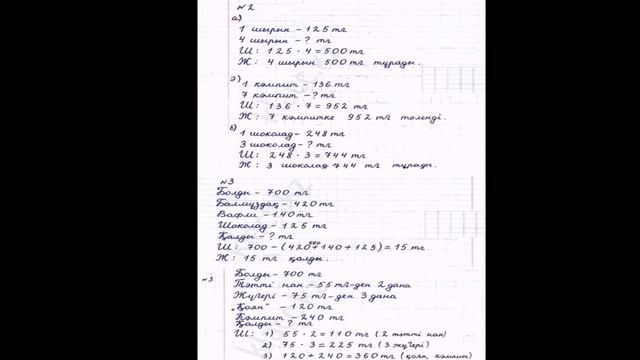 №2
а)
1 шырын – 125 тг
4 шырын – ? тг
Ш: 125 · 4 = 500 тг
Ж: 4 шырын 500 тг тұрады.
ә)
1 кәмпит – 136 тг
7 кәмпит – ? тг
Ш: 136 · 7 = 952 тг
Ж: 7 кәмпитке 952 тг төленді.
б)
1 шоколад – 248 тг
3 шоколад – ? тг
Ш: 248 · 3 = 744 тг
Ж: 3 шоколад 744 тг тұрады.
№3
Болды – 700 тг
Балмұздақ – 420 тг
Вафли – 140 тг
Шоколад – 125 тг
Қалды – ? тг
560
Ш: 700 – (420 + 140 + 125) = 15 тг
Ж: 15 тг қалды.
№3
Болды – 700 тг
Тәтті нан – 55 тг-ден 2 дана
Жүгері – 75 тг-ден 3 дана
"Қоян" – 120 тг
Кәмпит – 240 тг
Қалды – ? тг
Ш: 1) 55 · 2 = 110 тг (2 тәтті нан)
2) 75 · 3 = 225 тг (3 жүгері)
3) 120 + 240 = 360 тг (қоян, кәмпит)